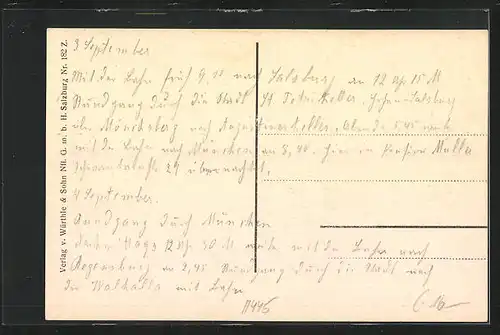 Verlag v. Würthle & Sohn Nfl. G. m. b. H. Salzburg Nr. 182 Z.
3 September
Mit der Bahn früh 9.10 nach Salzburg an 12 Uhr 15 M
Rundgang durch die Stadt St Peterskeller, Hohen-Salzburg
über Mönchsberg nach Augustinerkeller, Abends 5.45
mit der Bahn nach München an 8,40. hier in Pension Mulla
29 übernachtet,
4 September.
Rundgang durch München
12 Uhr 30 M mit der Bahn nach
Regensburg an 2,45 Rundgang durch die Stadt nach
der Walhalla mit Bahn